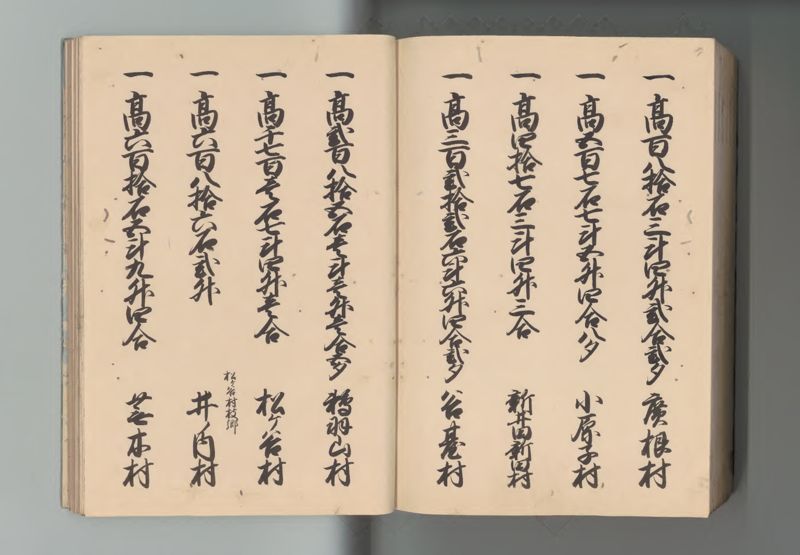 一 高百八拾石三斗四升弐合弐夕 廣根村
一 高五百七石七斗五升四合八夕 小原子村
一 高四拾七石三斗四升三合 新井田新田村
一 高三百弐拾弐石六斗六升四合弐夕 谷台村
一 高弐百八拾五石壱斗壱升壱合五夕 羽山村
一 高千七百壱石七斗四升壱合 松ケ谷村
松ケ谷村枝郷
一 高六百八拾六石弐升 井ノ内村
一 高六百拾石五斗九升四合 芝本村